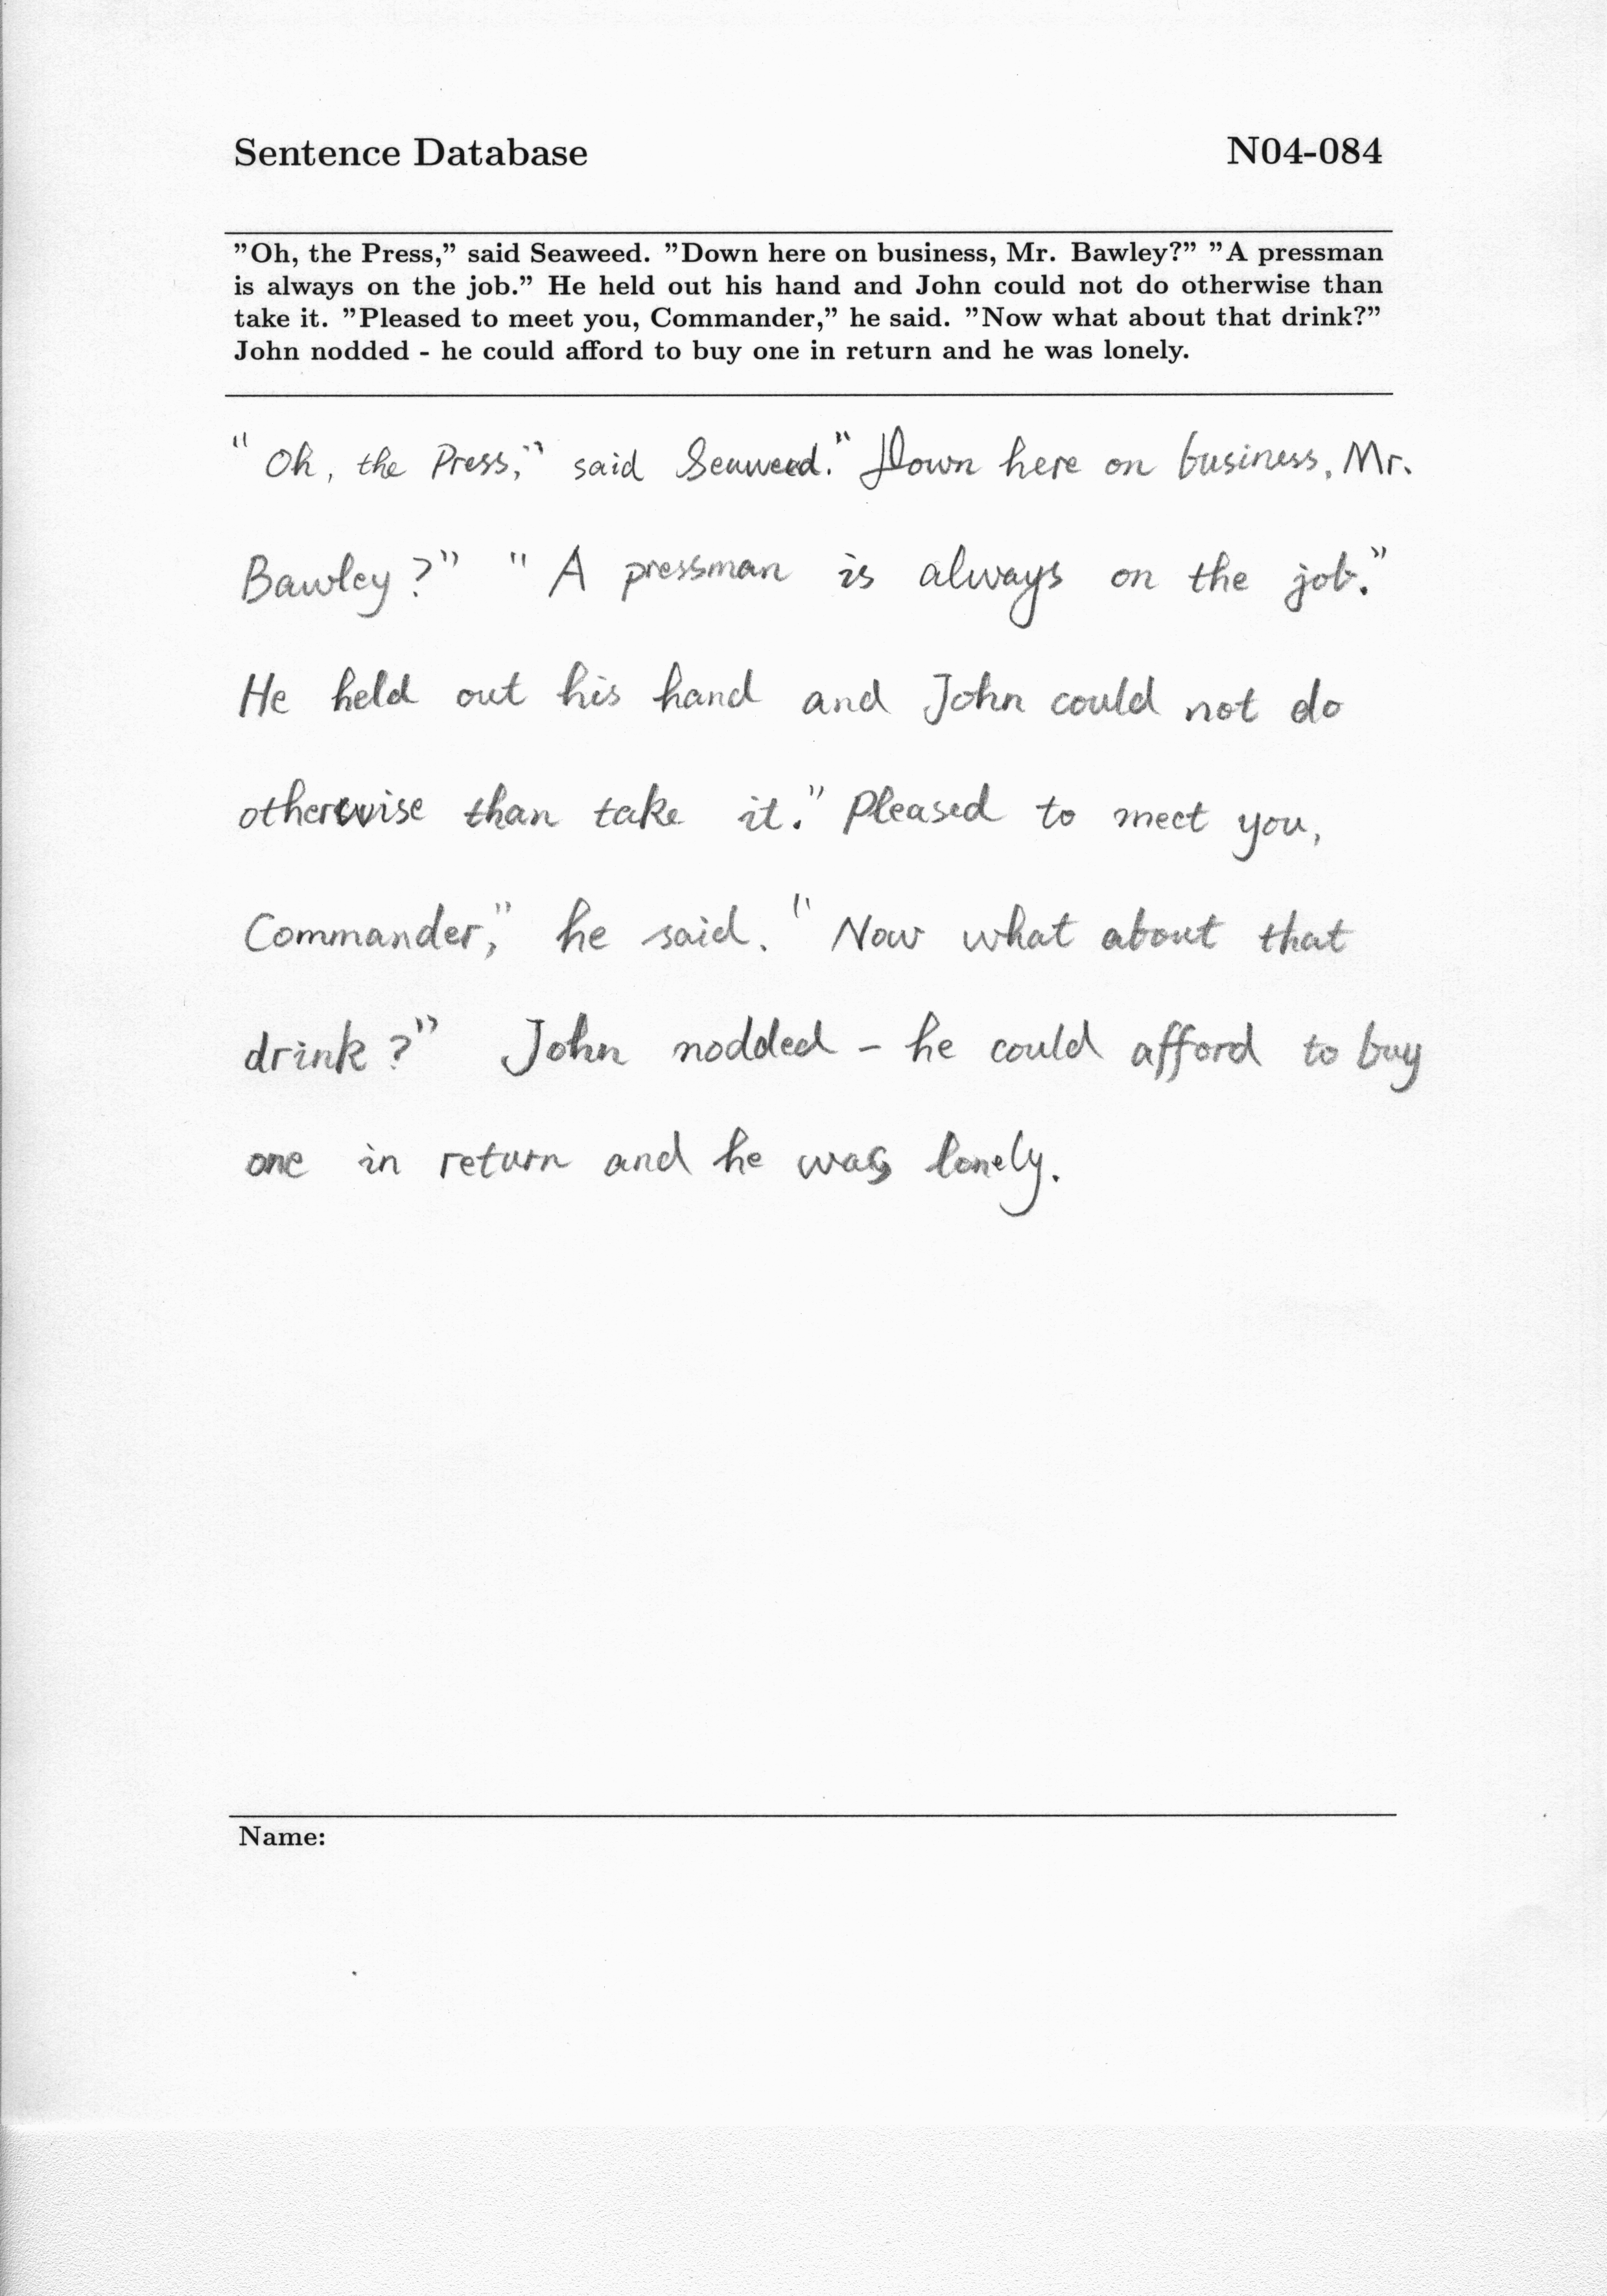 Sentence Database N04-084
"Oh, the Press," said Seaweed. "Down here on business, Mr. Bawley?" "A pressman
is always on the job." He held out his hand and John could not do otherwise than
take it. "Pleased to meet you, Commander," he said. "Now what about that drink?"
John nodded - he could afford to buy one in return and he was lonely.
"Oh, the Press," said Seaweed." Down here on business, Mr.
Bawley?" "A pressman is always on the job."
He held out his hand and John could not do
otherwise than take it." Pleased to meet you,
Commander," he said. "Now what about that
drink?" John nodded - he could afford to buy
one in return and he was lonely.
Name: